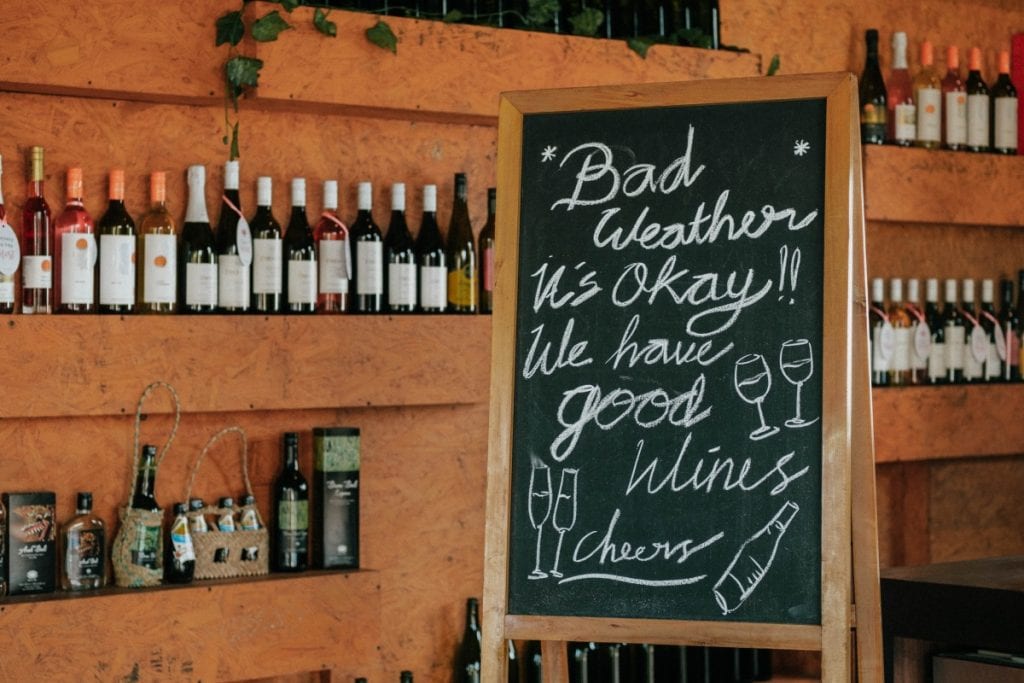 * Bad *
Weather
it's okay!!
We have
good
Wines
Cheers